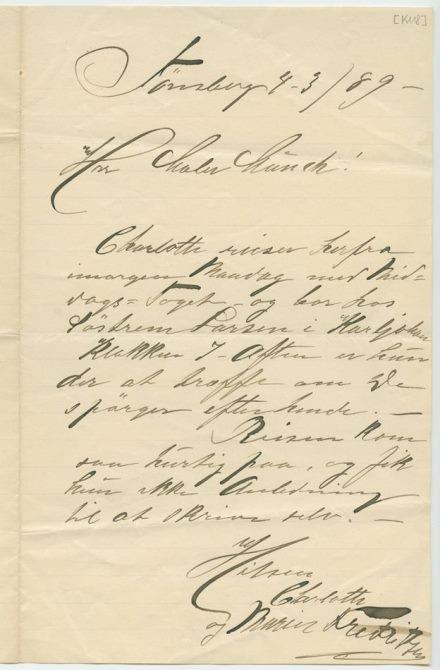 [K448]
Tönsberg 4-3/89 —
Herr Maler Münch!
Charlotte reiser herfra
imorgen Mandag med Mid=
dags=Toget – og bor hos
Söstrene Larsen i Karljohan
Klokken 7 – Aften er hun
der at træffe om De
spörger efter hende. —
Reisen kom
saa hurtig paa, og fik
hun ikke Anledning
til at skrive selv. —
Hilsen
Charlotte
og